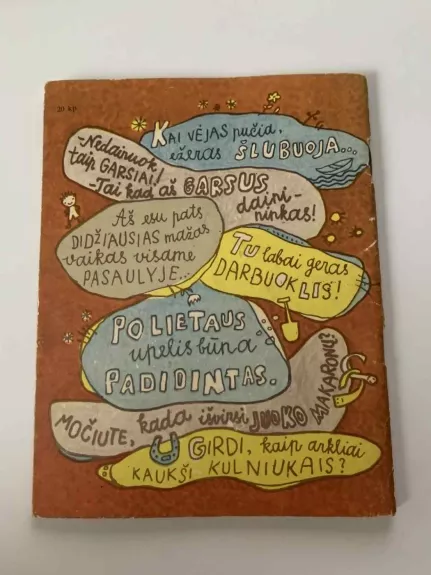 20 kp.
KAI VĖJAS pučia,
ežeras ŠLUBUOJA...
-Nedainuok
taip GARSIAI!
-Tai kad aš GARSUS
daini-
ninkas!
Aš esu pats
DIDŽIAUSIAS mažas
vaikas visame
PASAULYJE...
Tu labai geras
DARBUOKLIS!
PO LIETAUS
upelis būna
PADIDINTAS.
MOČIUTE, kada išvirsi JUOKO
MAKARONŲ?
GIRDI, kaip arkliai
KAUKŠI KULNIUKAIS?